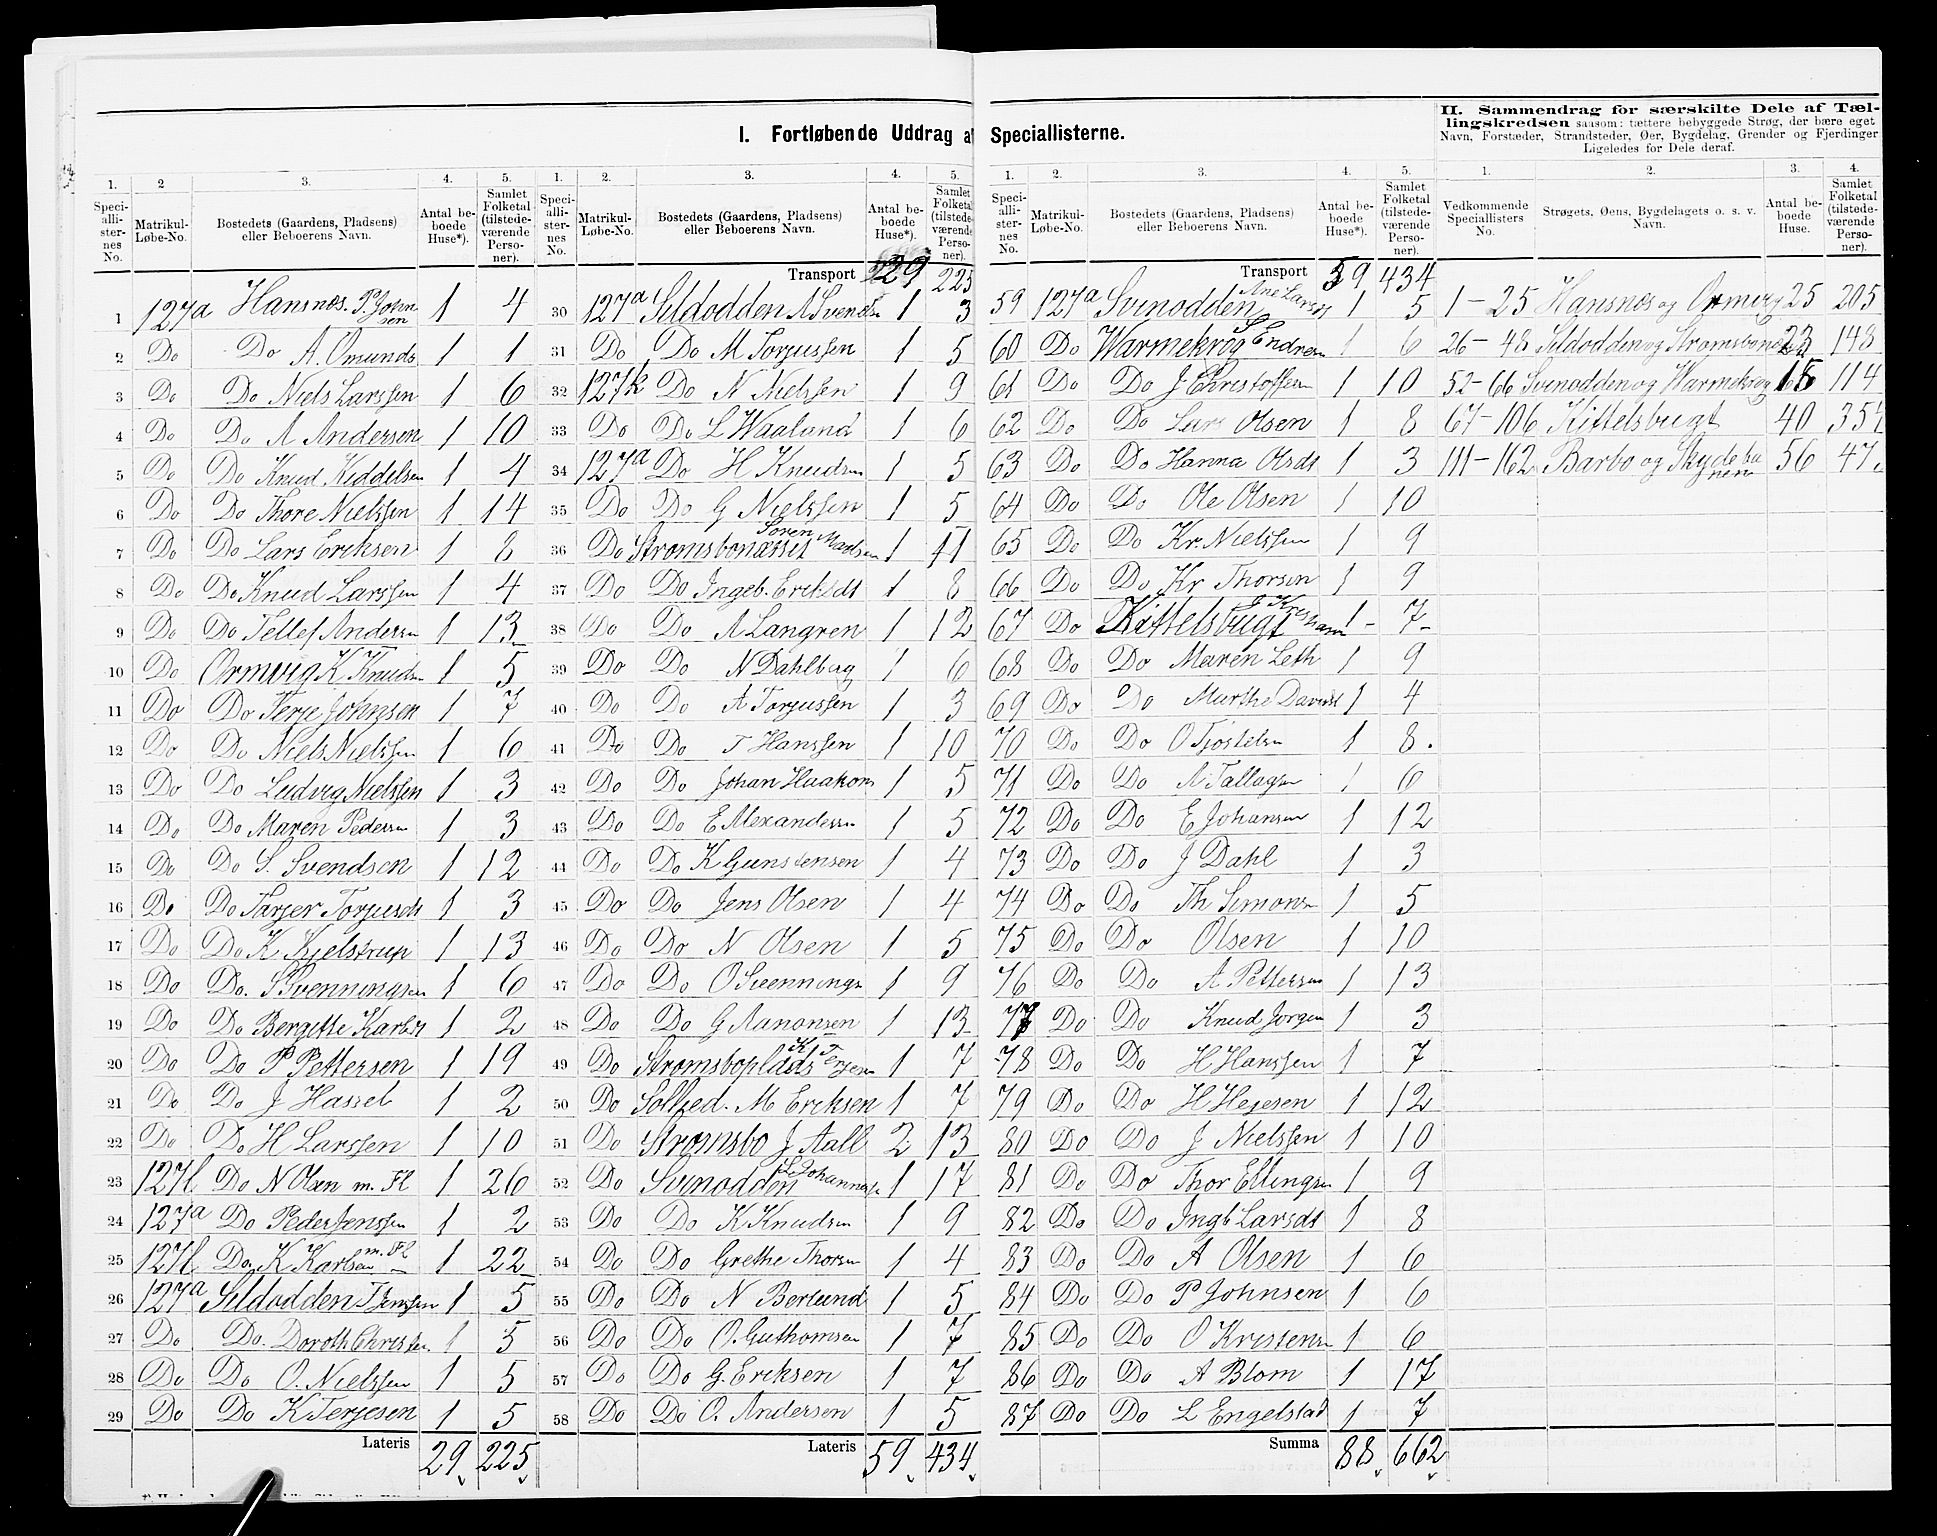 I. Fortløbende Uddrag af Speciallisterne.
II. Sammendrag for særskilte Dele af Tæl-
lingskredsen saasom: tættere bebyggede Strøg, der bære eget
Navn, Forstæder, Strandsteder, Øer, Bygdelag, Grender og Fjerdinger
Ligeledes for Dele deraf.
1. 2 3. 4. 5.
Speci-alli-ster-nes No. Matrikul-Løbe-No. Bostedets (Gaardens, Pladsens) eller Beboerens Navn. Antal be-boede Huse*). Samlet Folketal (tilstede-værende Perso-ner).
1 127a Hansnæs. P. Johnsen 1 4
2 Do Do A. Omunds 1 1
3 Do Do Niels Larssen 1 6
4 Do Do A Andersen 1 10
5 Do Do Knud Kiddelsen 1 4
6 Do Do Thore Nielssen 1 14
7 Do Do Lars Eriksen 1 8
8 Do Do Knud Larssen 1 4
9 Do Do Tellef Andersn 1 13
10 Do Ormvig K Knudsn 1 5
11 Do Do Terje Johnsen 1 7
12 Do Do Niels Nielssen 1 6
13 Do Do Ludvig Nielssen 1 3
14 Do Do Maren Pedersn 1 3
15 Do Do S. Svendsen 1 12
16 Do Do Tarjer Torjusds 1 3
17 Do Do K Kjelstrup 1 13
18 Do Do. S Svenningsen 1 6
19 Do Do Bergitte Karlsds 1 2
20 Do Do P Pettersen 1 19
21 Do Do J Hassel 1 2
22 Do Do H Larssen 1 10
23 127l Do N Olsen m. Fl 1 26
24 127a Do Peder Jenssen 1 2
25 127l Do K Karlsen m. Fl 1 22
26 127a Sildodden T Jenssen 1 5
27 Do Do. Doroth. Christen. 1 5
28 Do Do O. Nielssen 1 5
29 Do Do K Terjesen 1 5
Lateris 29 225
1. 2. 3. 4. 5.
Speci-alli-ster-nes No. Matrikul-Løbe-No. Bostedets (Gaardens, Pladsens) eller Beboerens Navn. Antal be-boede Huse*). Samlet Folketal (tilstede-værende Perso-ner).
Transport 29 225
30 127a Sildodden A Svendsn 1 3
31 Do Do M Torjussen 1 5
32 127k Do N Nielssen 1 9
33 Do Do L Waaland 1 6
34 127a Do H Knudsen 1 5
35 Do Do G Nielssen 1 5
36 Do Strømsbonæsset Søren Madsen 1 11
37 Do Do Ingeb. Eriksds 1 8
38 Do Do A Langren 1 12
39 Do Do N Dahlberg 1 6
40 Do Do A Torjussen 1 3
41 Do Do T Hanssen 1 10
42 Do Do Johan Haakons 1 5
43 Do Do E Alexandersn 1 5
44 Do Do K Gunstensen 1 4
45 Do Do Jens Olsen 1 4
46 Do Do N Olsen 1 5
47 Do Do O Svennings 1 9
48 Do Do G Aanonsen 1 13
49 Do Strømsboplads K Terjesn 1 7
50 Do Solhed. M Eriksen 1 7
51 Do Strømsbo J Aall 2 13
52 Do Svinodden L Johannesn 1 17
53 Do Do K Knudsn 1 9
54 Do Do Grethe Thorsn 1 4
55 Do Do N Berlund 1 5
56 Do Do O. Guthomsen 1 7
57 Do Do G. Eriksen 1 7
58 Do Do O. Andersen 1 5
Lateris 59 434
1. 2. 3. 4. 5.
Speci-alli-ster-nes No. Matrikul-Løbe-No. Bostedets (Gaardens, Pladsens) eller Beboerens Navn. Antal be-boede Huse*). Samlet Folketal (tilstede-værende Perso-ner).
Transport 59 434
59 127a Svinodden Ane Larsds 1 5
60 Do Warmekrog S Endresn 1 6
61 Do Do J Christoffersn 1 10
62 Do Do Lars Olsen 1 8
63 Do Do Hanna Olsds 1 3
64 Do Do Ole Olsen 1 10
65 Do Do Kr. Nielssen 1 9
66 Do Do Kr Thorsen 1 9
67 Do Kittelsbugt 1 7
68 Do Do Maren Leth 1 9
69 Do Do Marthe Davidsd 1 4
70 Do Do O Tjøstelsn 1 8.
71 Do Do A Tallagsn 1 6
72 Do Do E Johansen 1 12
73 Do Do J Dahl 1 3
74 Do Do Th Simonsn 1 5
75 Do Do Olsen 1 10
76 Do Do A Pettersen 1 13
77 Do Do Knud Jorgen 1 3
78 Do Do H Hanssen 1 7
79 Do Do H Hejesen 1 12
80 Do Do J Nielssen 1 10
81 Do Do Thor Ellingsn 1 9
82 Do Do Ingb Larsds 1 8
83 Do Do A Olsen 1 6
84 Do Do P Johnsen 1 6
85 Do Do O Kristensn 1 6
86 Do Do A Blom 1 17
87 Do Do L Engelstad 1 7
Summa 88 662
1. 2. 3. 4.
Vedkommende Speciallisters No. Strøgets, Øens, Bygdelagets o. s. v. Navn. Antal be-boede Huse. Samlet Folketal (tilstede-værende Perso-ner).
1-25 Hansnæs og Ormvig 25 205
26-48 Sildodden og Strømsbonæs 23 148
52-66 Svinodden og Warmekrog 15 114
67-106 Kittelsbugt 40 354
111-162 Barbo og Skydebanem 56 47